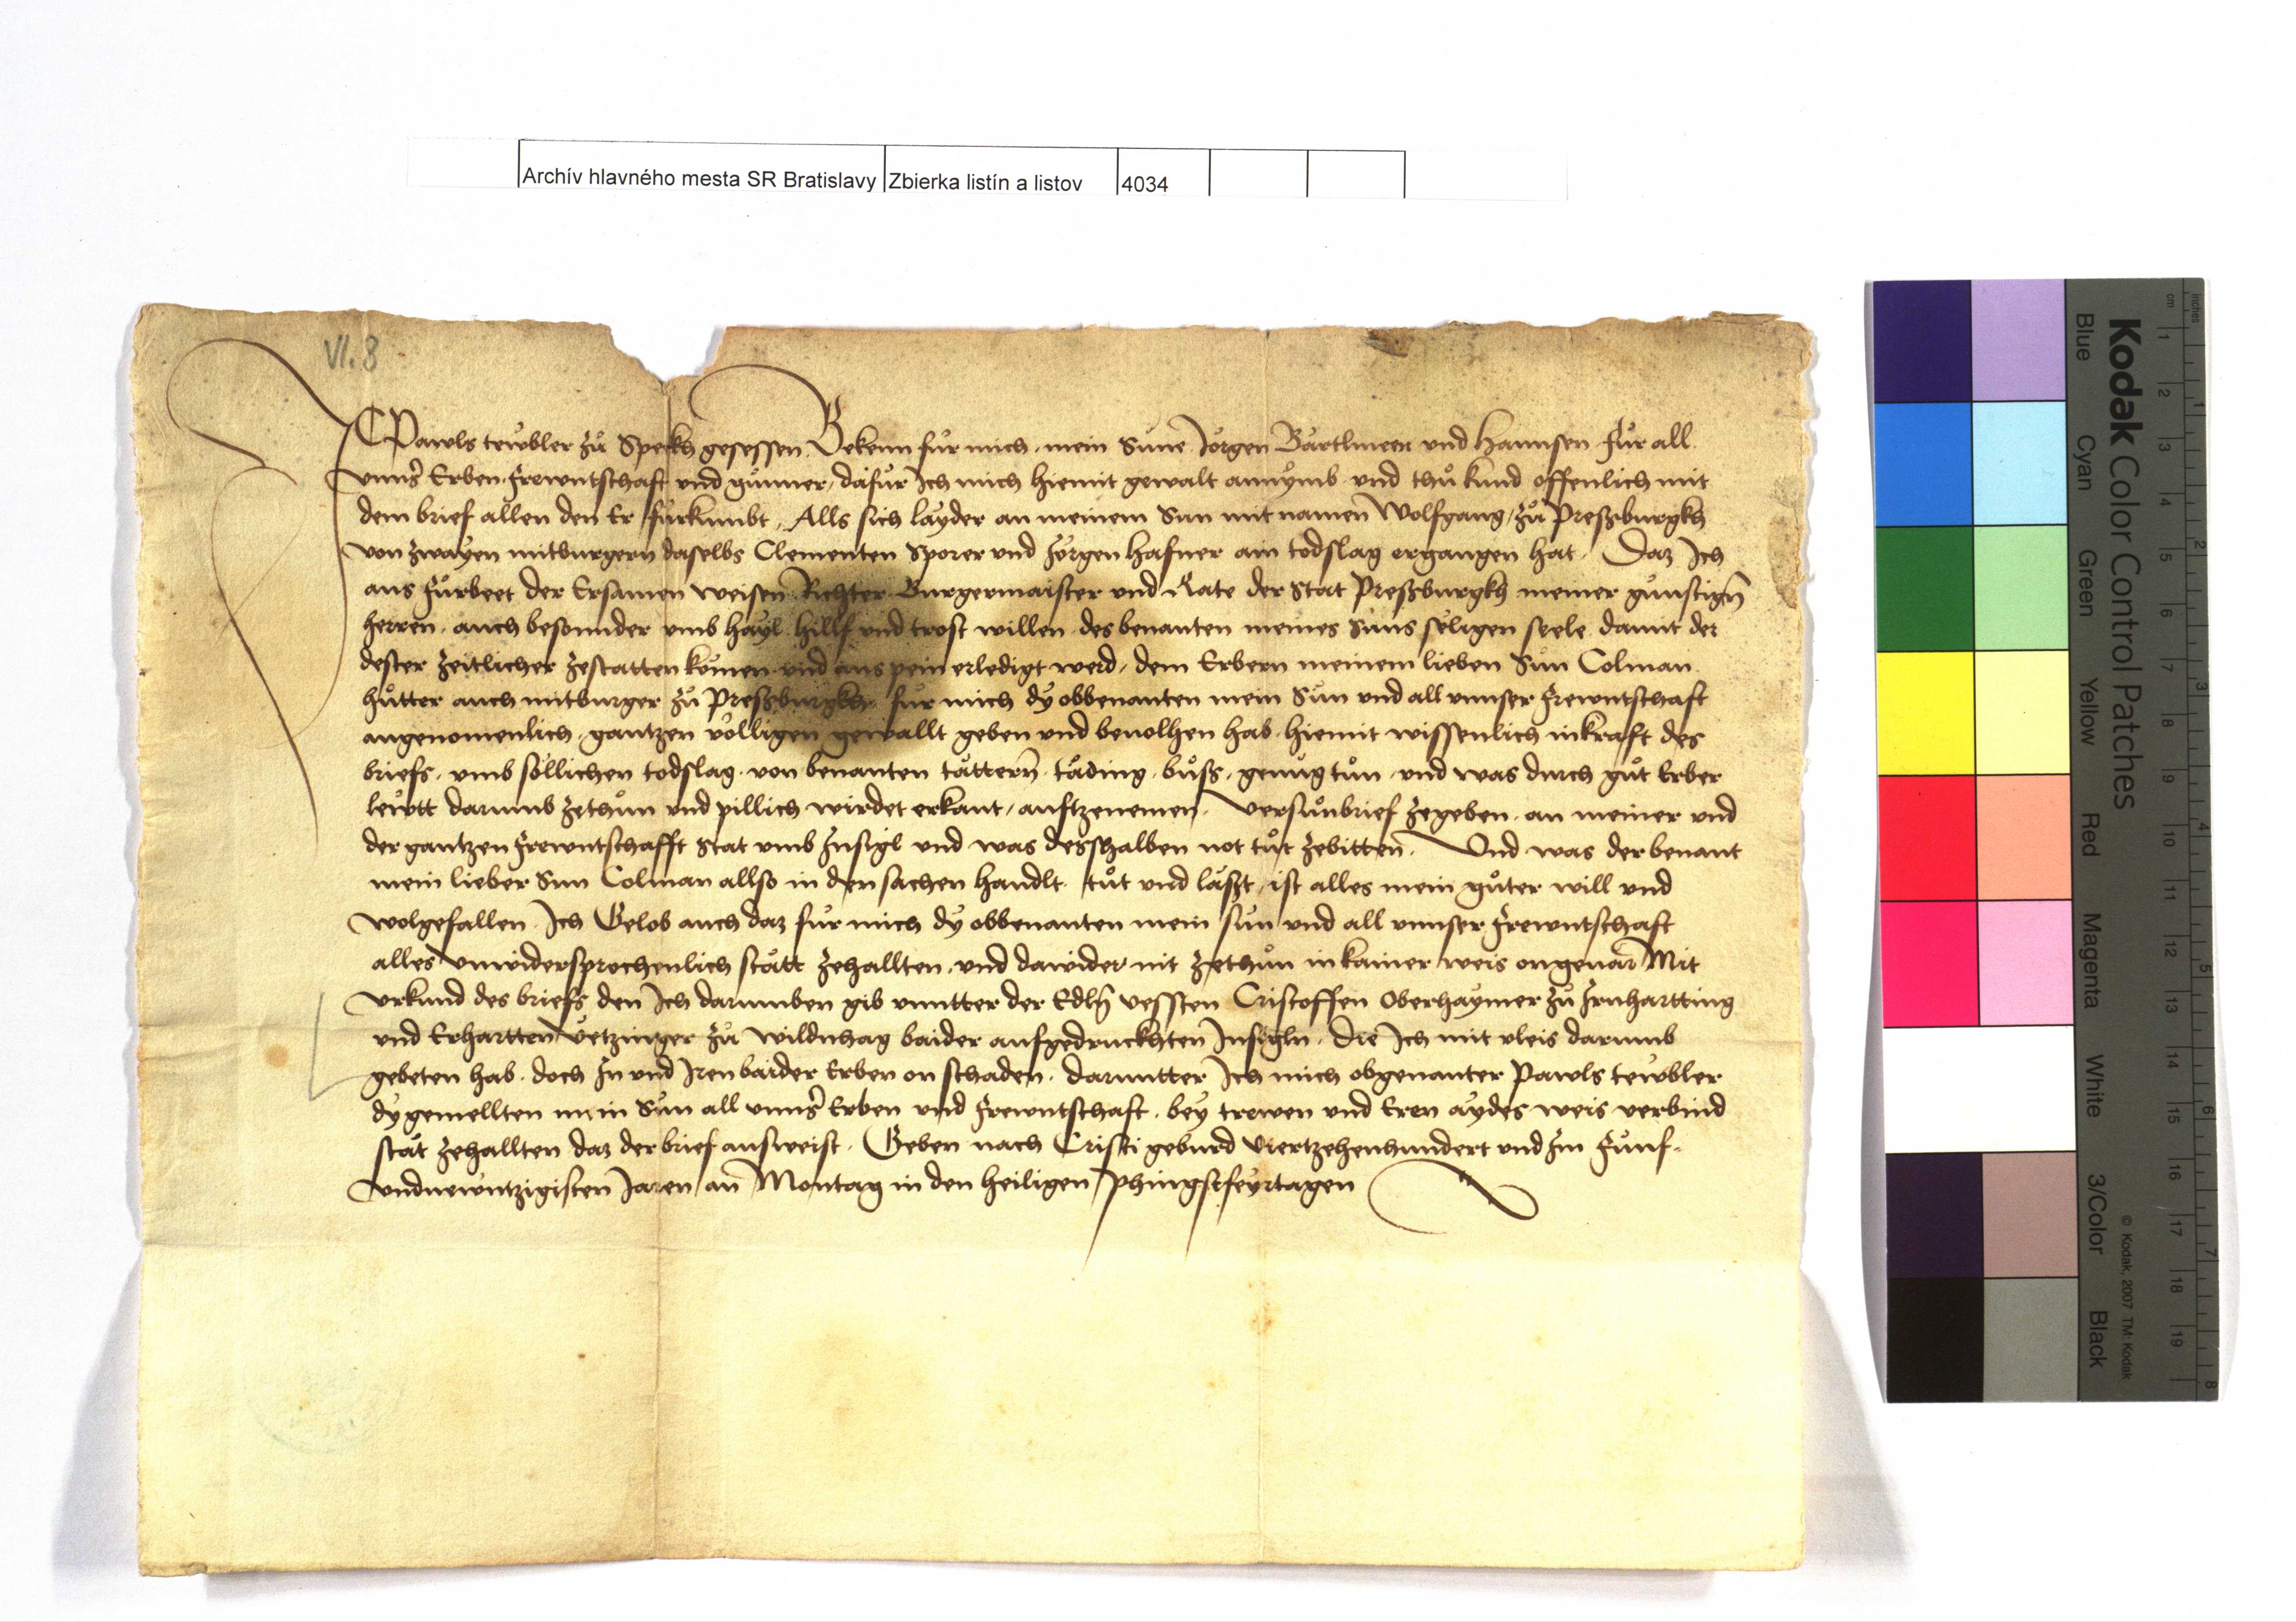 Archív hlavného mesta SR Bratislavy Zbierka listín a listov 4034
VI. 8
Ich Pawls tewbler zů Sperkh gesessen. Bekenn für mich, mein Süne Jörgen Bärtlmeen und Hannsen für all
unns̉ Erben frewntschaft und günner, dafür Ich mich hiemit gewalt annymb und thů kund offenlich mit
dem brief allen den Er fürkumbt, Alls sich layder an meinem Sun mit namen Wolfgang, zů Preßburgkh
von zwayen mitburgern daselbs Clementen Sporer und Jörgen hafner ain todslag ergangen hat. Daz Ich
aus fürbeet der Ersamen weisen Richter Burgermaister und Rate der Stat Preßburgkh meiner günstign̄
herren, auch besonnder umb hayl hillf und trost willen des benanten meines Suns säligen seele damit der
dester zeitlicher zestatten kömen und aus pein erledigt werd, dem Erbern meinem lieben Sun Colman
hůtter auch mitburger zů Preßburgkh für mich dy obbenanten mein Sün und all unnser frewntschaft
angenomenlich, gantzen völligen gewallt geben und beuolhen hab, hiemit wissenlich in kraft des
briefs, umb söllichen todslag, von benanten tättern̄, täding, bůss, genůg tůn, und was durch gůt Erber
lewtt darumb zethůn und pillich wirdet erkant, auftzenemen, versůnbrief zegeben, an meiner und
der gantzen frewntschafft stat umb Insigl und was desshalben not tůt zebitten̄. Und was der benant
mein lieber Sun Colman allso in den sachen handlt, tůt und läßt, ist alles mein gůter will und
wolgefallen Ich Gelob auch daz für mich dy obbenanten mein sün und all unnser frewntschaft
alles unwidersprochenlich stätt zehallten, und dawider nit zethůn in kainer weis ongenär Mit
urkund des briefs den Ich darumben gib unntter der Edln̄ vessten Cristoffen Oberhaymer zů Irnhartting
und Erhartten Vetzinger zů Wildnhag baider aufgedruckhten Insigln, Die Ich mit vleis darumb
gebeten hab, doch In und Iren baider Erben on schaden, daruntter Ich mich obgenanter Pawls tewbler
dy gemellten mein Sün all unns̉ Erben und frewntschaft, bey trewen und Eren aydes weis verbind
stät zehallten daz der brief ausweist. Geben nach Cristi geburd Viertzehenhundert und Im Fünf-
undnewntzigisten Jaren an Montag in den heiligen phingstfeyrtagen
Kodak Color Control Patches
Blue Cyan Green Yellow Red Magenta White 3/Color Black
© Kodak, 2007 TM: Kodak
inches 1 2 3 4 5 6 7 8
cm 1 2 3 4 5 6 7 8 9 10 11 12 13 14 15 16 17 18 19